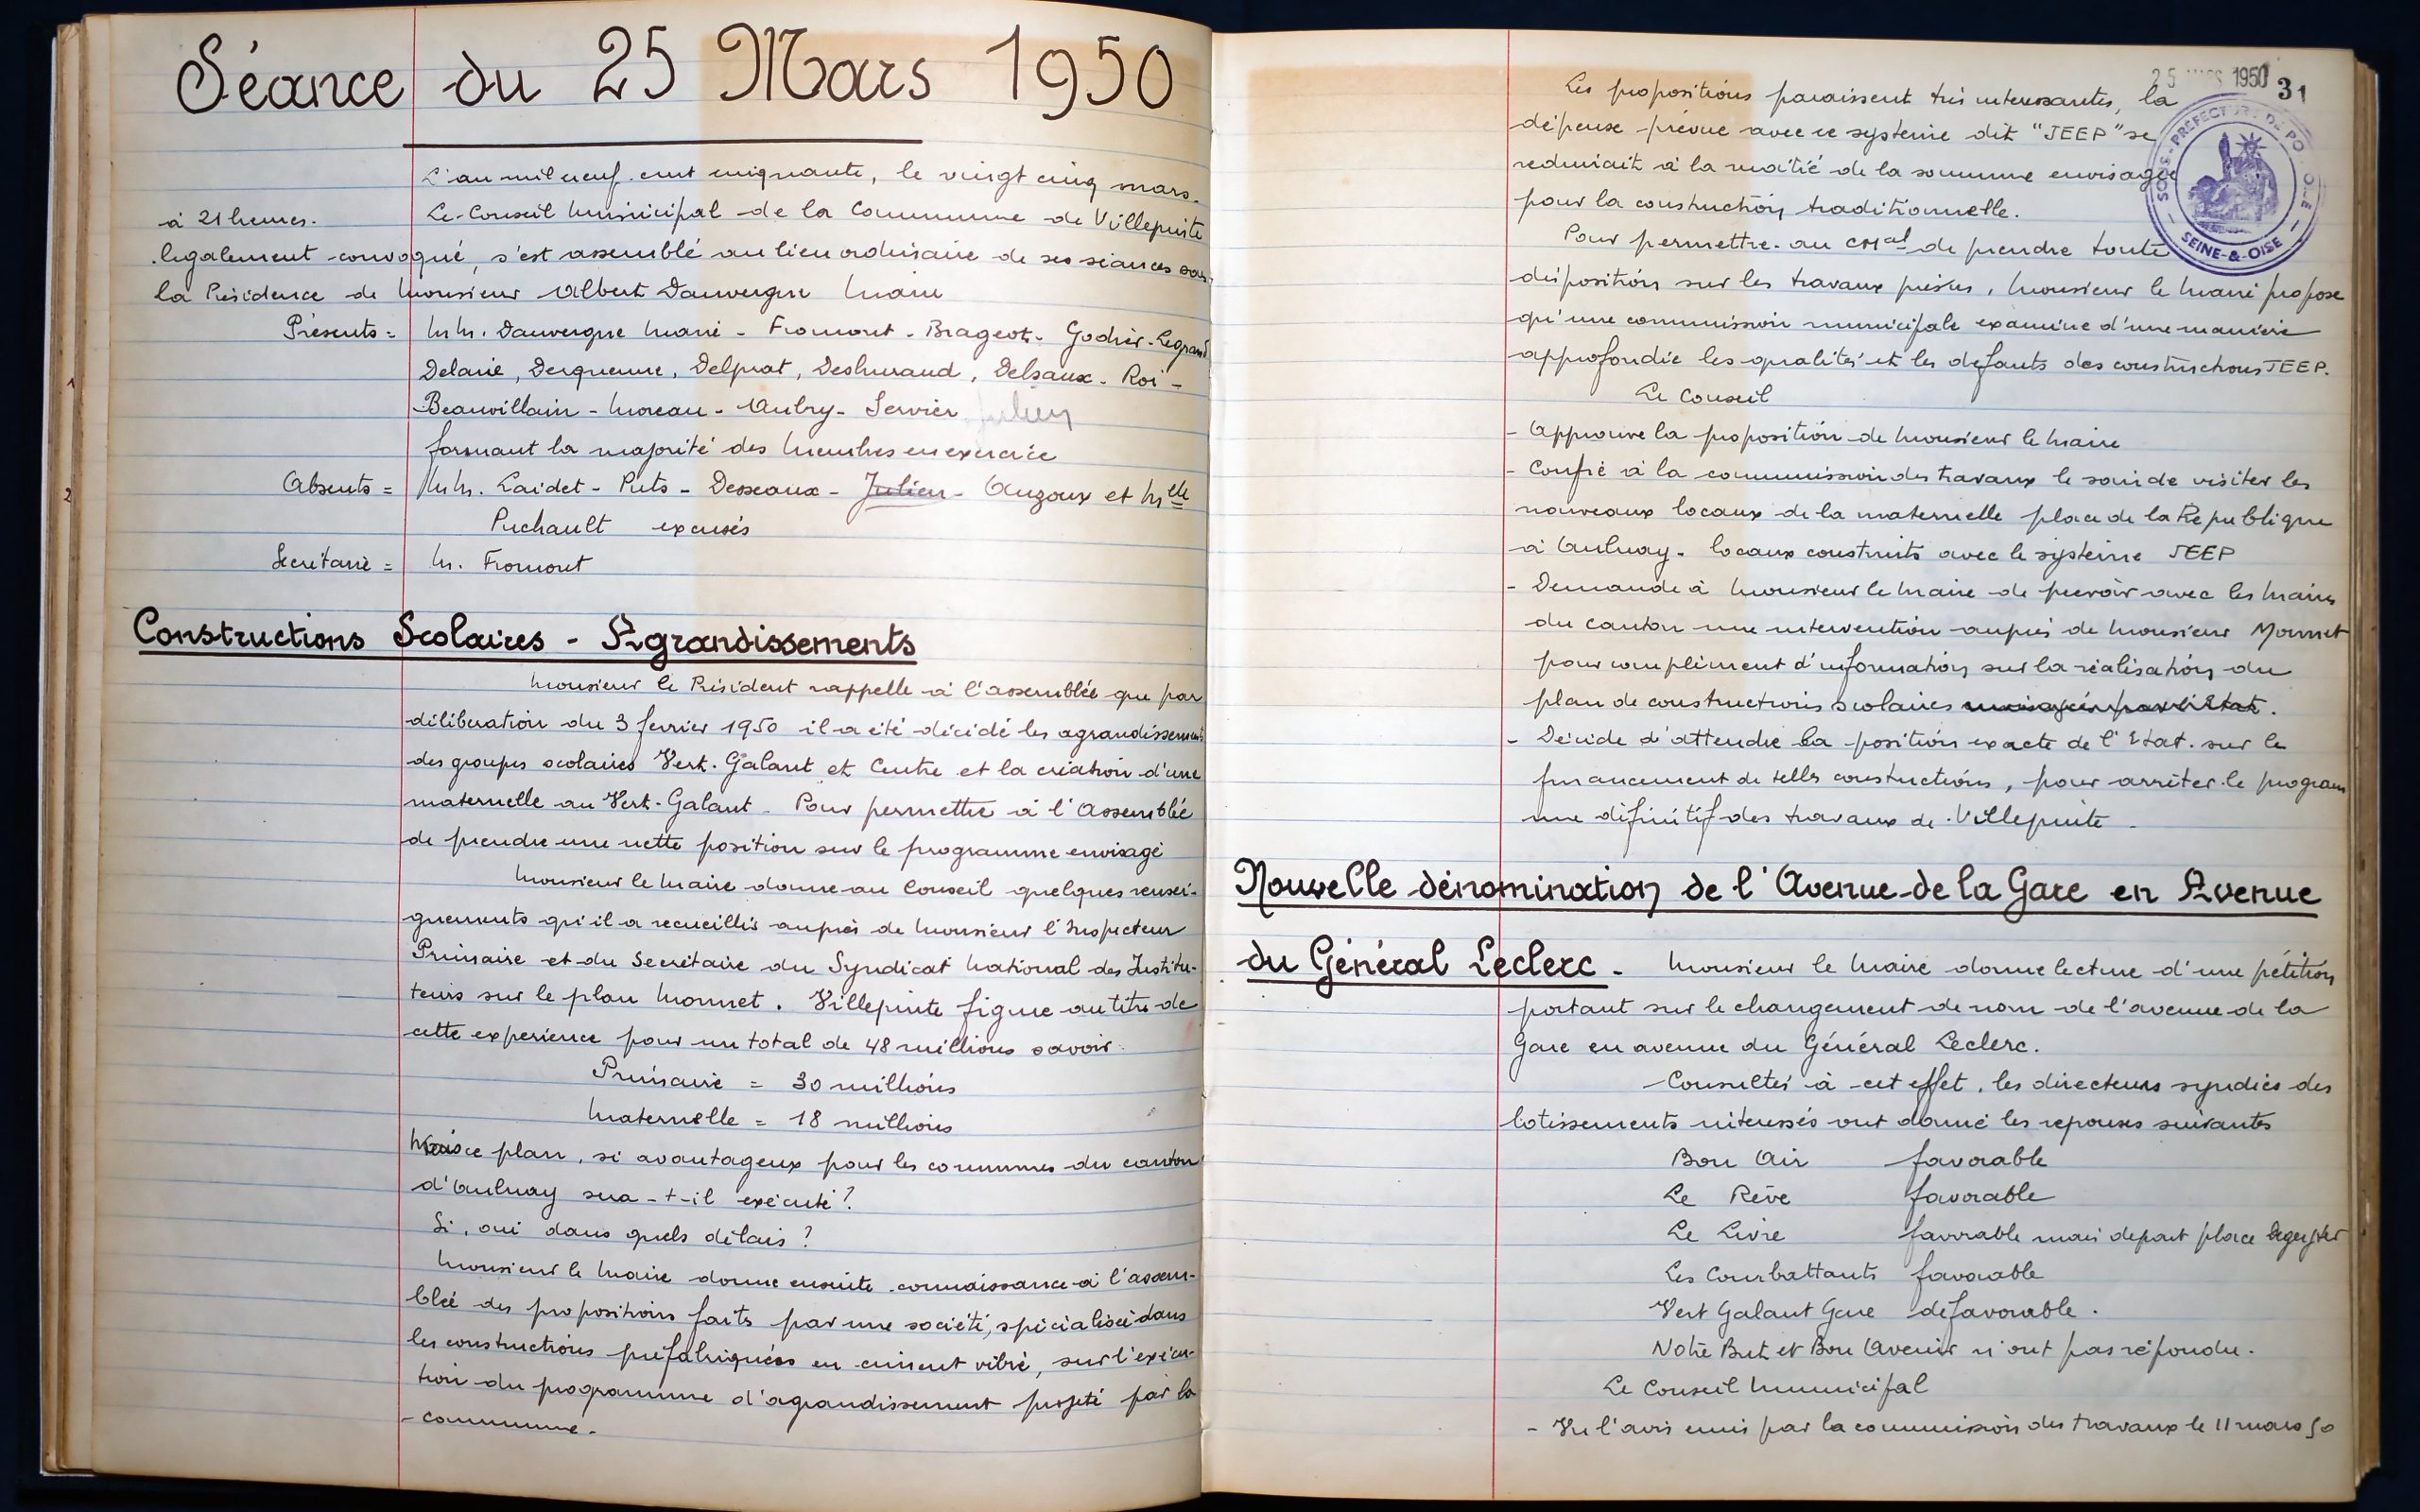 Séance du 25 Mars 1950
L'an mil neuf cent cinquante, le vingt cinq mars.
à 21 heures. Le Conseil Municipal de la Commune de Villepinte
légalement convoqué, s'est assemblé au lieu ordinaire de ses séances sous
la Présidence de Monsieur Albert Dauvergne Maire
Présents = M.M. Dauvergne Maire - Fromont - Brageot - Godier - Legrand
Delarie, Derquenne, Delprat, Deshuraud, Delsaux - Roi -
Beauvillain - Moreau - Aubry - Servier Julien
formant la majorité des Membres en exercice
Absents = M.M. Laidet - Puts - Desseaux - Julien - Auzoux et Mlle
Puchault excusés
Secrétaire = M. Fromont
Constructions Scolaires - Agrandissements
Monsieur le Président rappelle à l'assemblée que par
délibération du 3 février 1950 il a été décidé les agrandissements
des groupes scolaires Vert-Galant et Centre et la création d'une
maternelle au Vert-Galant. Pour permettre à l'Assemblée
de prendre une nette position sur le programme envisagé
Monsieur le Maire donne au Conseil quelques rensei-
gnements qu'il a recueillis auprès de Monsieur l'Inspecteur
Primaire et du Secrétaire du Syndicat National des Institu-
teurs sur le plan Monnet. Villepinte figure au titre de
cette expérience pour un total de 48 millions savoir
Primaire = 30 millions
Maternelle = 18 millions
Mais ce plan, si avantageux pour les communes du canton
d'Aulnay sera-t-il exécuté ?
Si, oui dans quels délais ?
Monsieur le Maire donne ensuite connaissance à l'assem-
blée des propositions faits par une société, spécialisée dans
les constructions préfabriquées en ciment vibré, sur l'exécu-
tion du programme d'agrandissement projeté par la
commune.
25 1950 31
SOUS-PREFECTURE DE PONTOISE
SEINE-&-OISE
Les propositions paraissent très intéressantes, la
dépense prévue avec ce système dit "JEEP" se
réduirait à la moitié de la somme envisagée
pour la construction traditionnelle.
Pour permettre au CMal de prendre toute
disposition sur les travaux prévus, Monsieur le Maire propose
qu'une commission municipale examine d'une manière
approfondie les qualités et les défauts des constructions JEEP.
Le Conseil
- Approuve la proposition de Monsieur le Maire
- Confie à la commission des travaux le soin de visiter les
nouveaux locaux de la maternelle place de la République
à Aulnay. locaux construits avec le système JEEP
- Demande à Monsieur le Maire de prévoir avec les Maires
du canton une intervention auprès de Monsieur Monnet
pour complément d'information sur la réalisation du
plan de constructions scolaires envisagées par l'Etat.
- Décide d'attendre la position exacte de l'Etat sur le
financement de telles constructions, pour arrêter le program
me définitif des travaux de Villepinte.
Nouvelle dénomination de l'Avenue de la Gare en Avenue
du Général Leclerc. Monsieur le Maire donne lecture d'une pétition
portant sur le changement de nom de l'avenue de la
Gare en avenue du Général Leclerc.
Consultés à cet effet, les directeurs syndics des
lotissements intéressés ont donné les réponses suivantes
Bon Air favorable
Le Rêve favorable
Le Livre favorable mais depart place
Les Combattants favorable
Vert Galant Gare défavorable.
Notre But et Bon Avenir n'ont pas répondu.
Le Conseil Municipal
- Vu l'avis émis par la commission des travaux le 11 mars 50